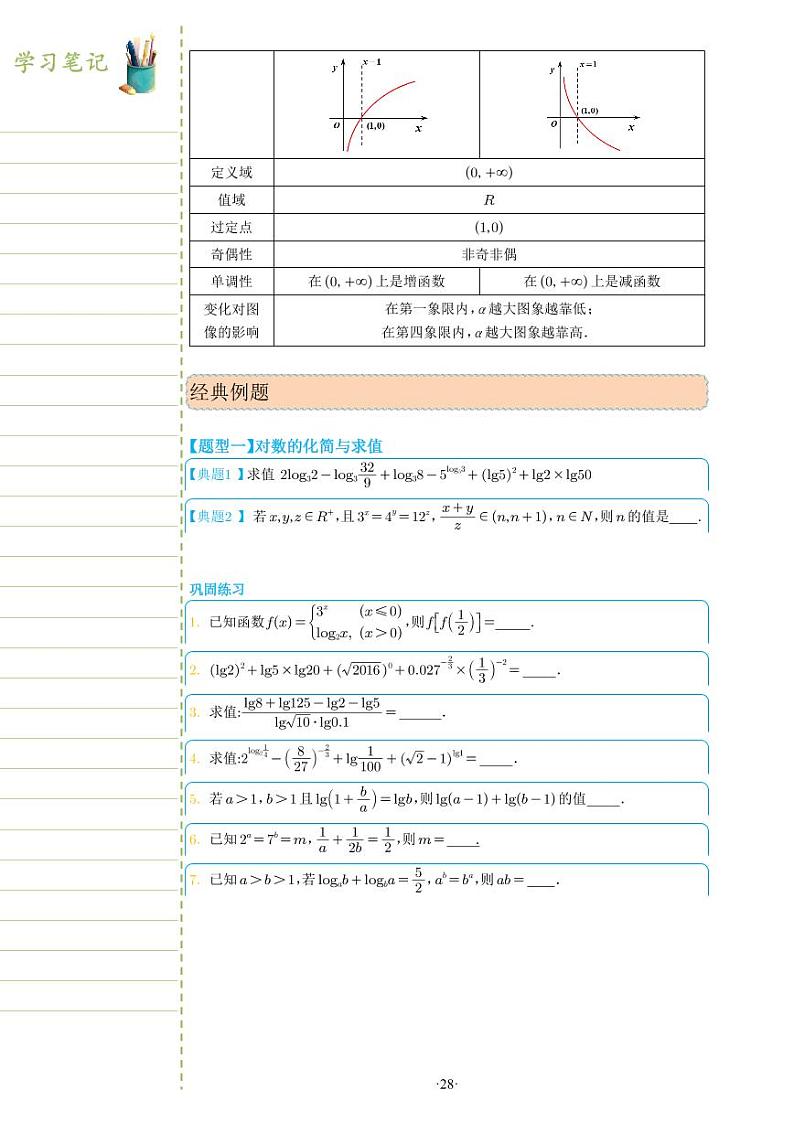 学习笔记
y x=1 y x=1
O (1,0) x O (1,0) x
定义域 (0,+∞)
值域 R
过定点 (1,0)
奇偶性 非奇非偶
单调性 在(0,+∞)上是增函数 在(0,+∞)上是减函数
变化对图像的影响 在第一象限内,α越大图象越靠低;
在第四象限内,α越大图象越靠高.
经典例题
【题型一】对数的化简与求值
【典题1 】求值 2log₃2−log₃32/9+log₃8−5^(log₅3)+(lg5)²+lg2×lg50
【典题2 】 若x,y,z∈R⁺,且3ˣ=4ʸ=12ᶻ, (x+y)/z∈(n,n+1), n∈N,则n的值是____.
巩固练习
1. 已知函数f(x)={3ˣ (x⩽0) log₂x, (x>0) ,则f[f(1/2)]=_____.
2. (lg2)²+lg5×lg20+(√2016)⁰+0.027^(−2/3)×(1/3)^(−2)=_____.
3. 求值:(lg8+lg125−lg2−lg5)/(lg√10·lg0.1)=______.
4. 求值:2^(log₂1/4)−(8/27)^(−2/3)+lg1/100+(√2−1)^(lg1)=_____.
5. 若a>1,b>1且lg(1+b/a)=lgb,则lg(a−1)+lg(b−1)的值_____.
6. 已知2ᵃ=7ᵇ=m, 1/a+1/2b=1/2,则m=____.
7. 已知a>b>1,若logₐb+log_b a=5/2, aᵇ=bᵃ,则ab=____.
·28·